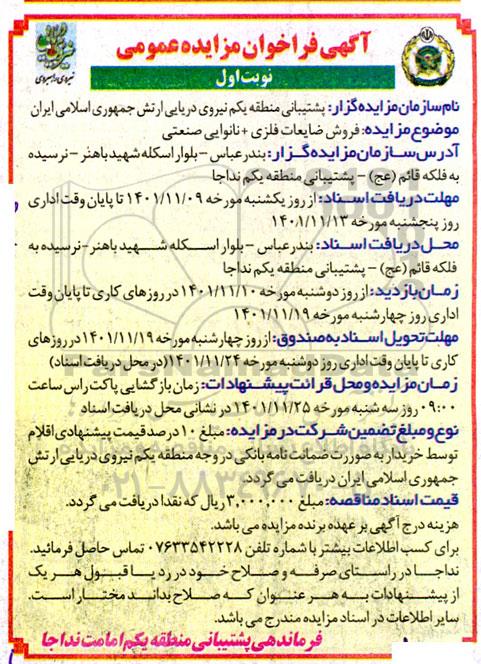 آگهی فراخوان مزایده عمومی
نوبت اول
نام سازمان مزایده گزار: پشتیبانی منطقه یکم نیروی دریایی ارتش جمهوری اسلامی ایران
موضوع مزایده: فروش ضایعات فلزی + نانوایی صنعتی
آدرس سازمان مزایده گزار: بندرعباس – بلوار اسکله شهید باهنر – نرسیده
به فلکه قائم (عج) – پشتیبانی منطقه یکم نداجا
مهلت دریافت اسناد: از روز یکشنبه مورخه ۱۴۰۱/۱۱/۰۹ تا پایان وقت اداری
روز پنجشنبه مورخه ۱۴۰۱/۱۱/۱۳
محل دریافت اسناد: بندرعباس – بلوار اسکله شهید باهنر – نرسیده به
فلکه قائم (عج) – پشتیبانی منطقه یکم نداجا
زمان بازدید: از روز دوشنبه مورخه ۱۴۰۱/۱۱/۱۰ در روزهای کاری تا پایان وقت
اداری روز چهارشنبه مورخه ۱۴۰۱/۱۱/۱۹
مهلت تحویل اسناد به صندوق: از روز چهارشنبه مورخه ۱۴۰۱/۱۱/۱۹ در روزهای
کاری تا پایان وقت اداری روز دوشنبه مورخه ۱۴۰۱/۱۱/۲۴ (در محل دریافت اسناد)
زمان مزایده و محل قرائت پیشنهادات: زمان بازگشایی پاکت راس ساعت
۰۹:۰۰ روز سه شنبه مورخه ۱۴۰۱/۱۱/۲۵ در نشانی محل دریافت اسناد
نوع و مبلغ تضمین شرکت در مزایده: مبلغ ۱۰ درصد قیمت پیشنهادی اقلام
توسط خریدار به صورت ضمانت نامه بانکی در وجه منطقه یکم نیروی دریایی ارتش
جمهوری اسلامی ایران دریافت می گردد.
قیمت اسناد مناقصه: مبلغ ۳,۰۰۰,۰۰۰ ریال که نقدا دریافت می گردد.
هزینه درج آگهی بر عهده برنده مزایده می باشد.
برای کسب اطلاعات بیشتر با شماره تلفن ۰۷۶۳۳۵۴۲۲۲۸ تماس حاصل فرمائید.
نداجا در راستای صرفه و صلاح خود در رد یا قبول هر یک
از پیشنهادات به هر عنوان که صلاح بداند مختار است.
سایر اطلاعات در اسناد مزایده مندرج می باشد.
فرماندهی پشتیبانی منطقه یکم امامت نداجا